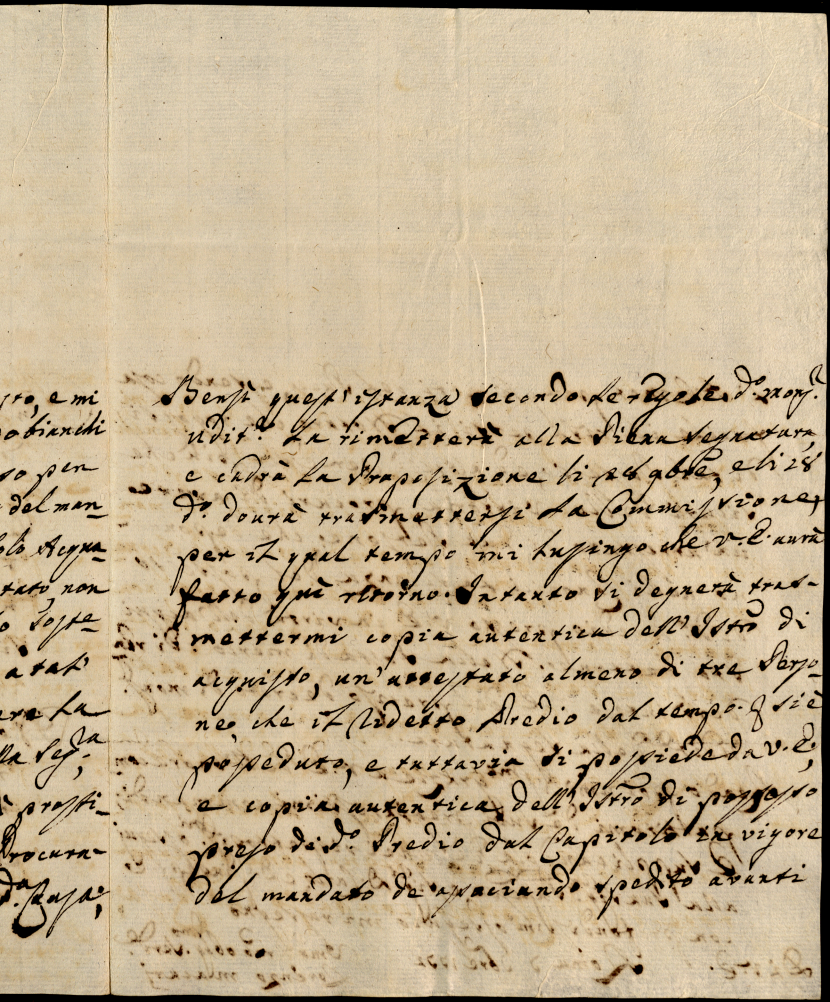 sto, e mi
obianchi
so per
del man-
olo Acqua-
tato, non
o soste-
à tal'
ere la
lla Seg.ra
prosti-
Procura-
d.a Casa;
Bensì quest'istanza secondo le regole d.o Mons.r
udit.e la rimetterà alla Piena Segnatura,
e cadrà la Proposizione li 28 9bre, e li 18
d.o dourà trasmettersi la Commissione,
per il qual tempo mi lusingo che V. E. aurà
fatto quì ritorno. Intanto si degnerà tras-
mettermi copia autentica dell'Istro di
acquisto, un'attestato almeno di tre Perso-
ne, che il sudetto Predio dal tempo si è
posseduto, e tuttavia si possiede da V. E.,
e copia autentica dell'Istro di possesso
preso de d.o Predio dal Capitolo in vigore
del mandato de spedito avanti